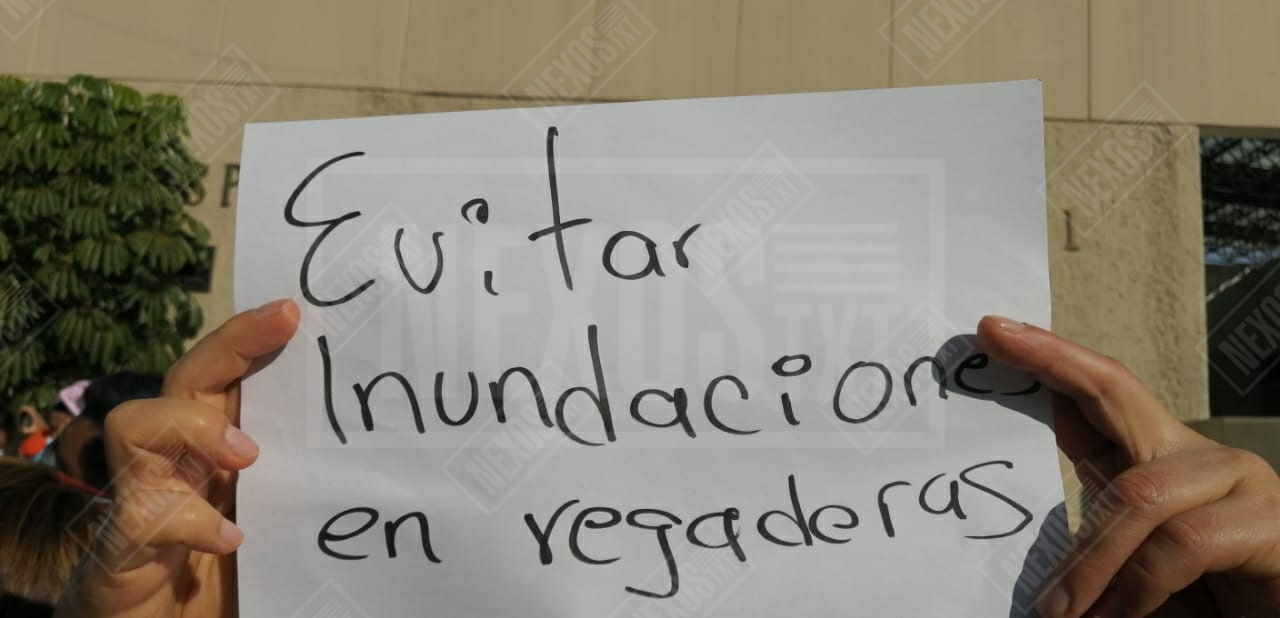 Evitar
Inundaciones
en regaderas
NEXOS TXT